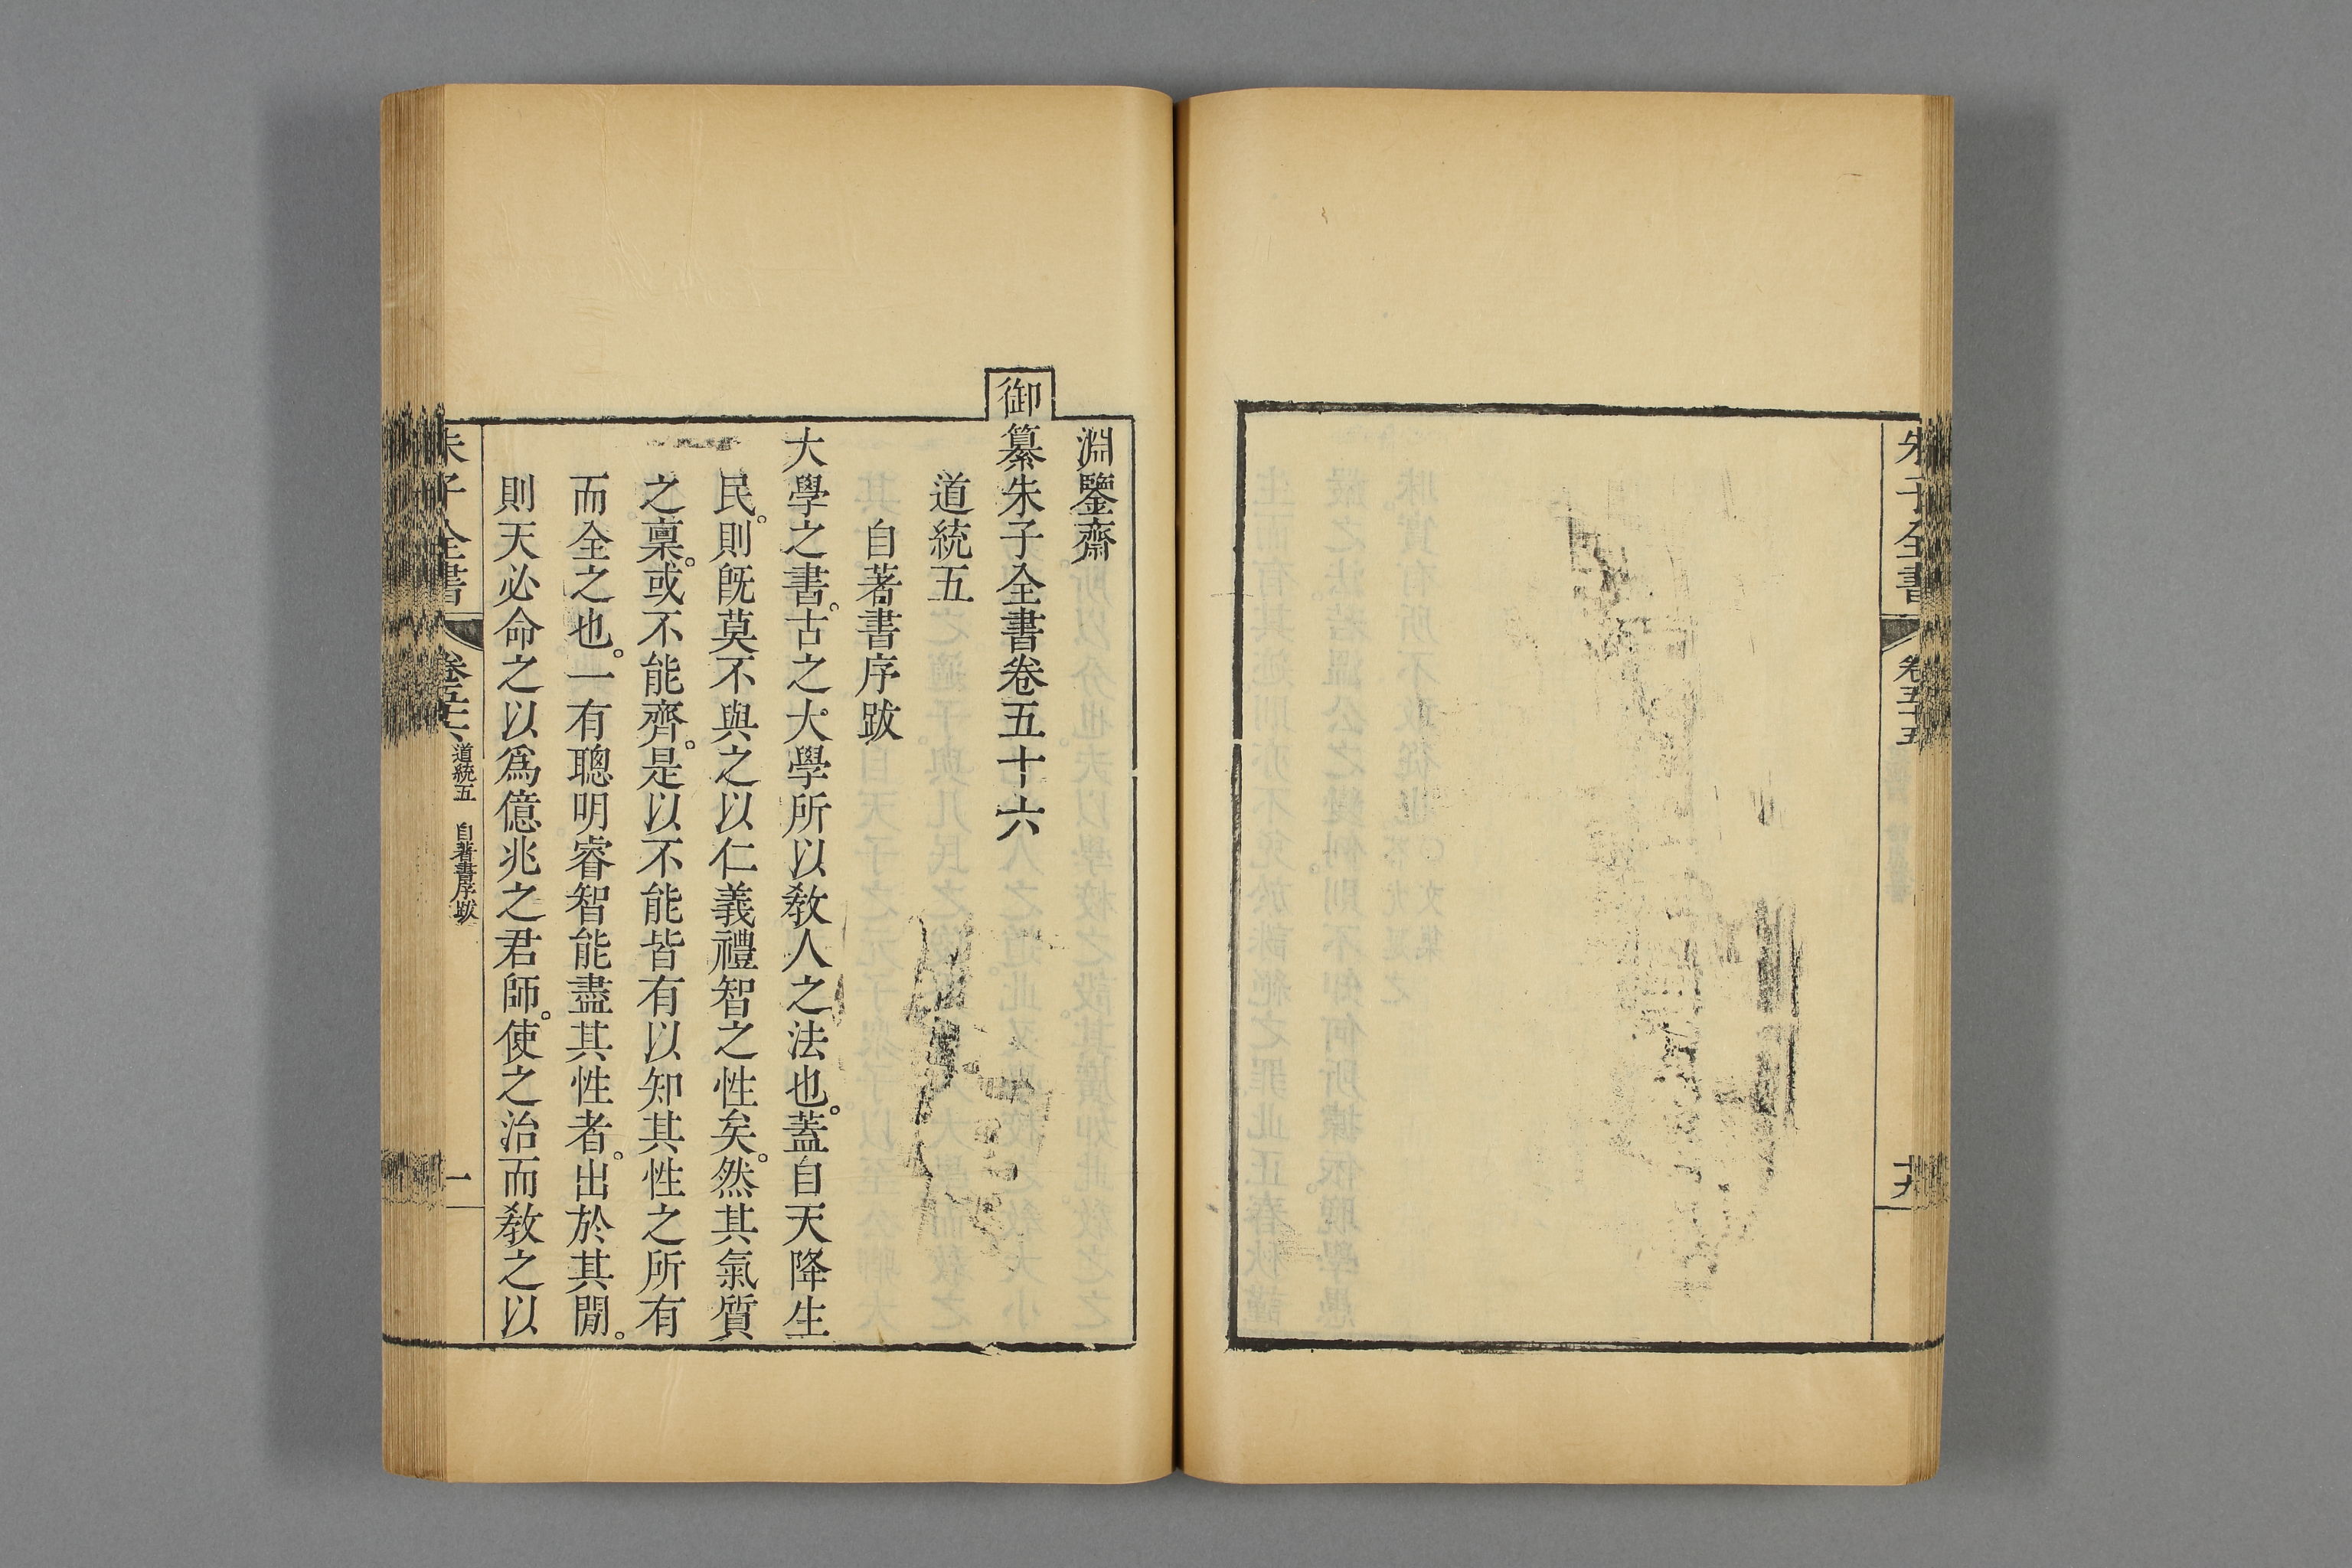 朱子全書
卷五十五
十九
淵鑒齋
御纂朱子全書卷五十六
道統五
自著書序跋
大學之書。古之大學所以敎人之法也。蓋自天降生
民。則旣莫不與之以仁義禮智之性矣。然其氣質
之稟。或不能齊。是以不能皆有以知其性之所有
而全之也。一有聰明睿智能盡其性者。出於其閒。
則天必命之以爲億兆之君師。使之治而敎之以
朱子全書
卷五十六
道統五 自著書序跋
一